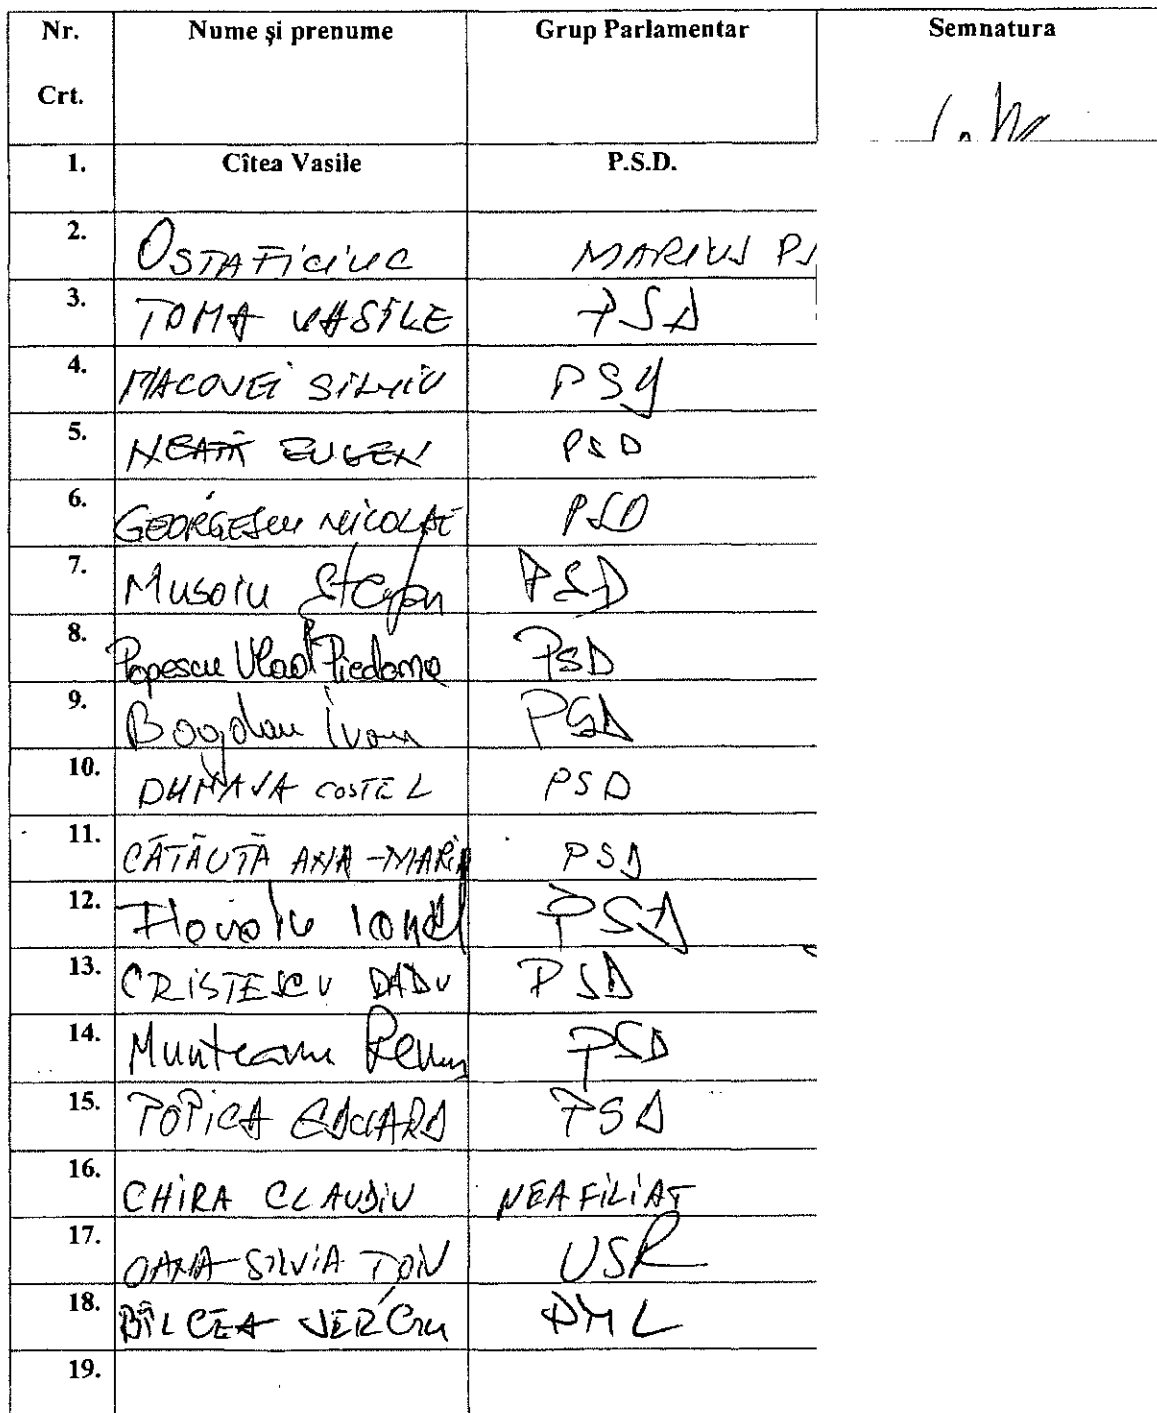 Nr. Crt. Nume și prenume Grup Parlamentar Semnatura
1. Cîtea Vasile P.S.D.
2. OSTAFICIUC MARIUS PS
3. TOMA VASILE PSD
4. MACOVEI SILVIU PSD
5. NEAȚĂ EUGEN PSD
6. GEORGESCU NICOLAE PSD
7. Musoiu Stefan PSD
8. Popescu Vlad Piedone PSD
9. Bogdan Ivan PSD
10. DUNAVA COSTEL PSD
11. CĂTĂUȚĂ ANA-MARIA PSD
12. Floroiu Ionel PSD
13. CRISTESCU RADU PSD
14. Munteanu Remus PSD
15. POPICA EDUARD PSD
16. CHIRA CLAUDIU NEAFILIAT
17. OANA-SILVIA ȚOIU USR
18. BÎLCEA PNL
19.